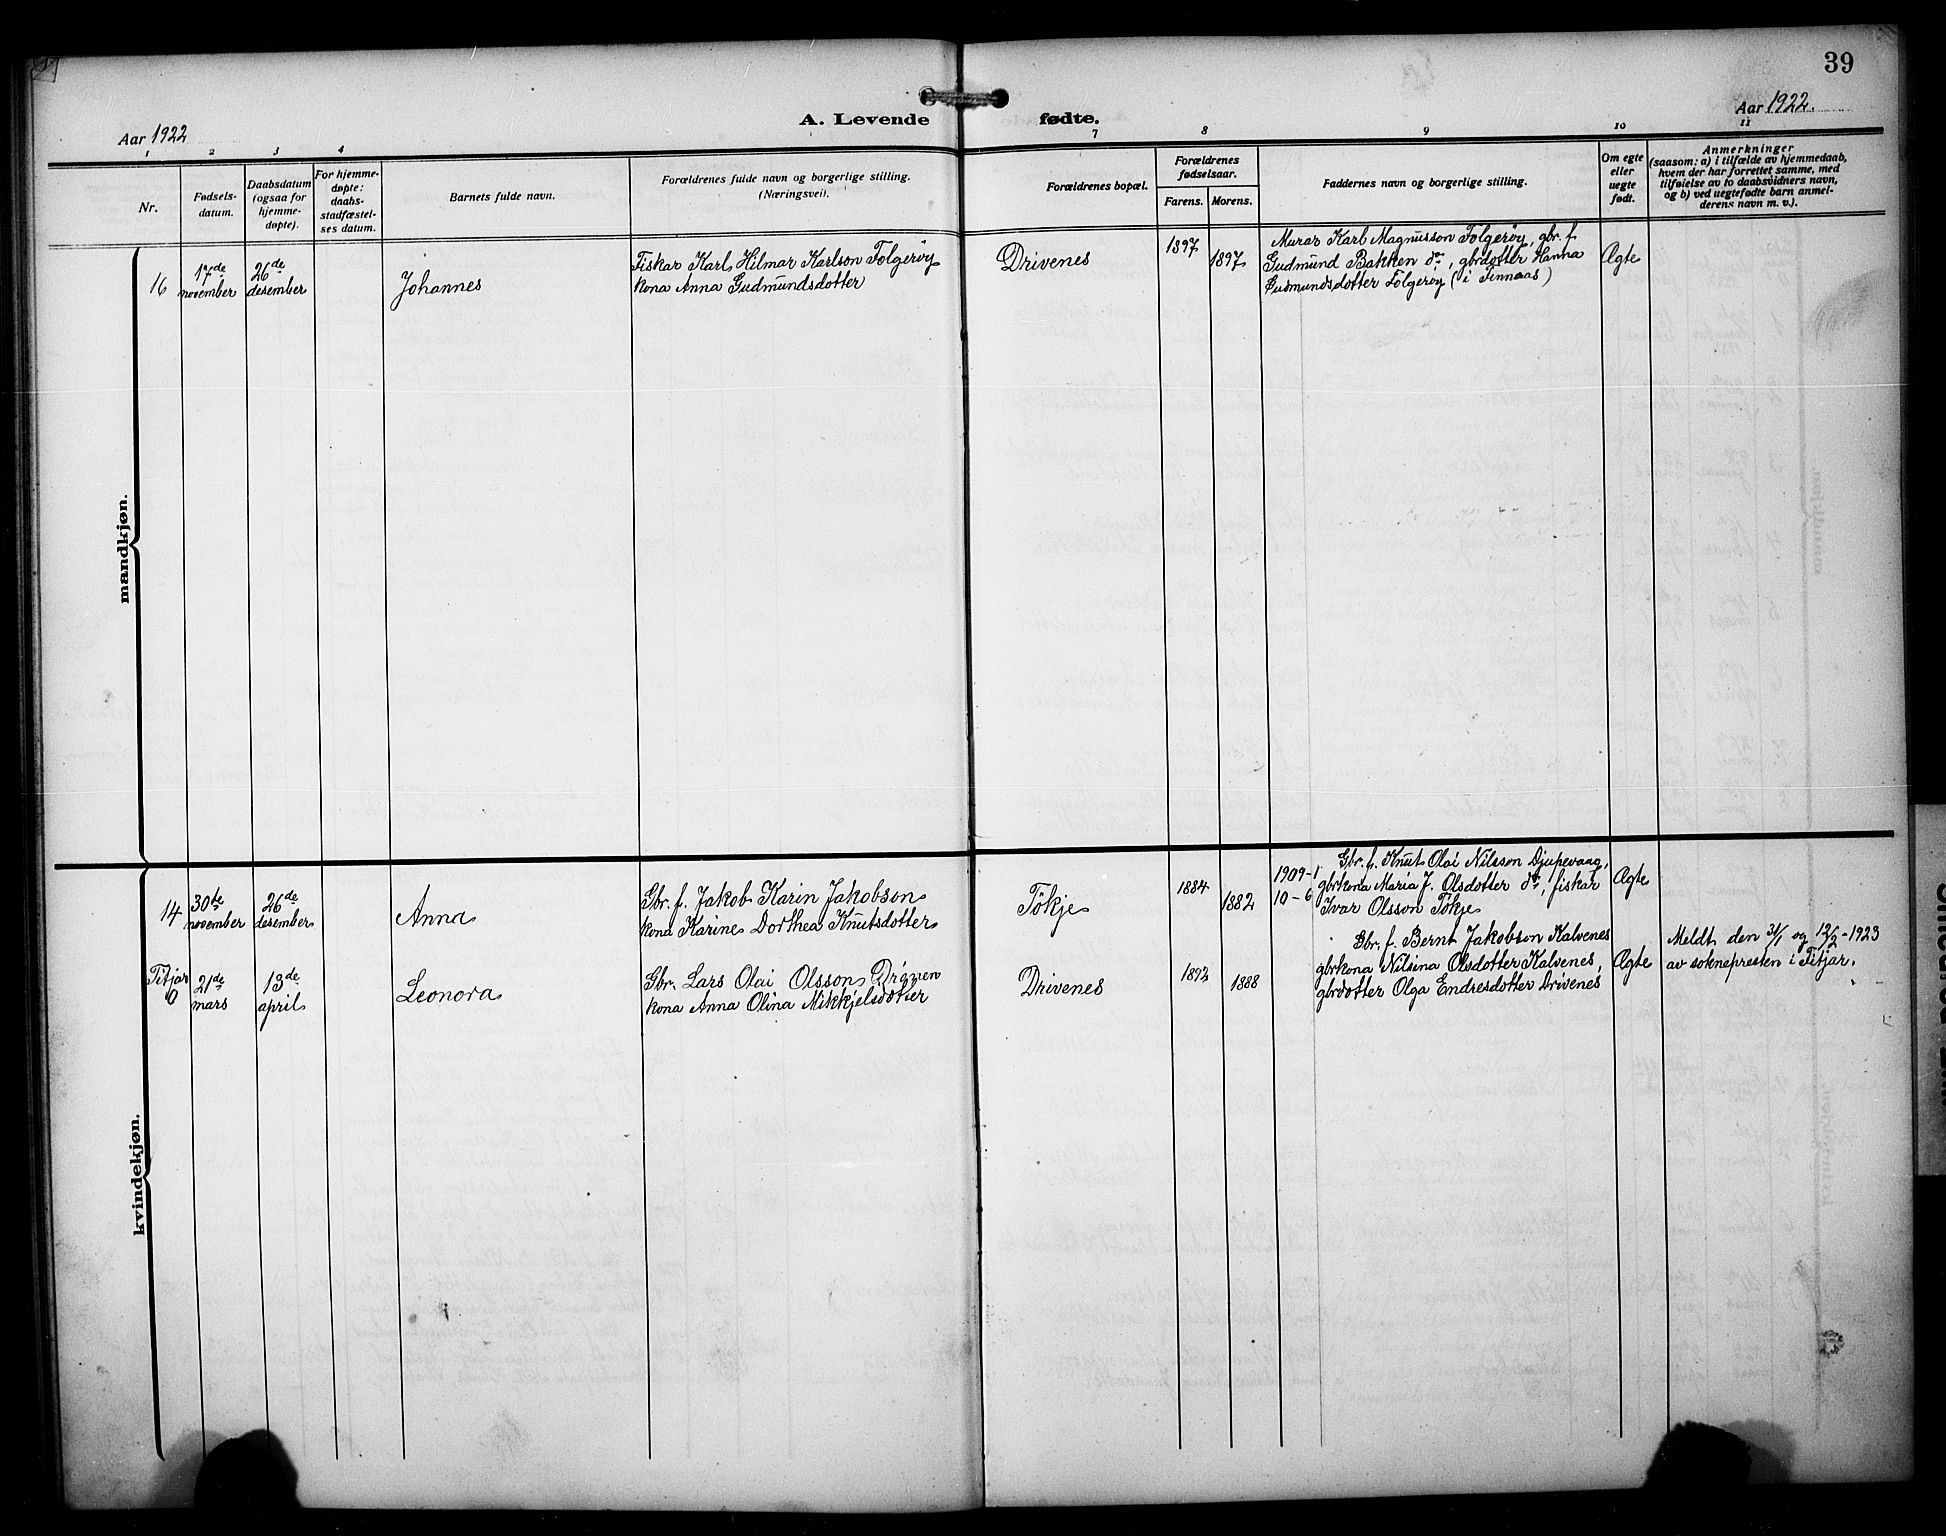 39
Aar 1922
A. Levende fødte.
Aar 1922.
1 2 3 4 7 8 9 10 11
Nr.
Fødsels-
datum.
Daabsdatum
(ogsaa for
hjemme-
døpte).
For hjemme-
døpte:
daabs-
stadfæstel-
ses datum.
Barnets fulde navn.
Forældrenes fulde navn og borgerlige stilling.
(Næringsvei).
Forældrenes bopæl.
Forældrenes
fødselsaar.
Farens. Morens.
Faddernes navn og borgerlige stilling.
Om egte
eller
uegte
født.
Anmerkninger
(saasom: a) i tilfælde av hjemmedaab,
hvem der har forrettet samme, med
tilføielse av to daabsvidners navn,
og b) ved uegtefødte barn anmel-
derens navn m. v.).
mandkjøn.
16
17de
november
26de
desember
Johannes
Fiskar Karl Hilmar Karlson Folgerøy
kona Anna Gudmundsdotter
Drivenes
1897
1897
Murar Karl Magnusson Folgerøy, gbr. f.
Gudmund Bakken do, gbrdotter Hanna
Gudmundsdotter Folgerøy (i Finnaas)
Ægte
kvindekjøn.
14
30te
november
26de
desember
Anna
Gbr. f. Jakob Karin Jakobson
kona Karine Dorthea Knutsdotter
Tökje
1884
1882
1909-1
10-6
Gbr. f. Knut Olai Nilsson Djupevaag,
gbrkona Maria J. Olsdotter do, fiskar
Ivar Olsson Tökje
Ægte
Fitjar
6
21de
mars
13de
april
Leonora
Gbr. Lars Olai Olsson
kona Anna Olina Mikkjelsdotter
Drivenes
1892
1888
Gbr. f. Bernt Jakobson Kalvenes
gbrkona Nilsina Olsdotter Kalvenes,
gbrdotter Olga Endresdotter Drivenes
Ægte
Meldt den 31/1 og 12/2-1923
av soknepresten i Fitjar.